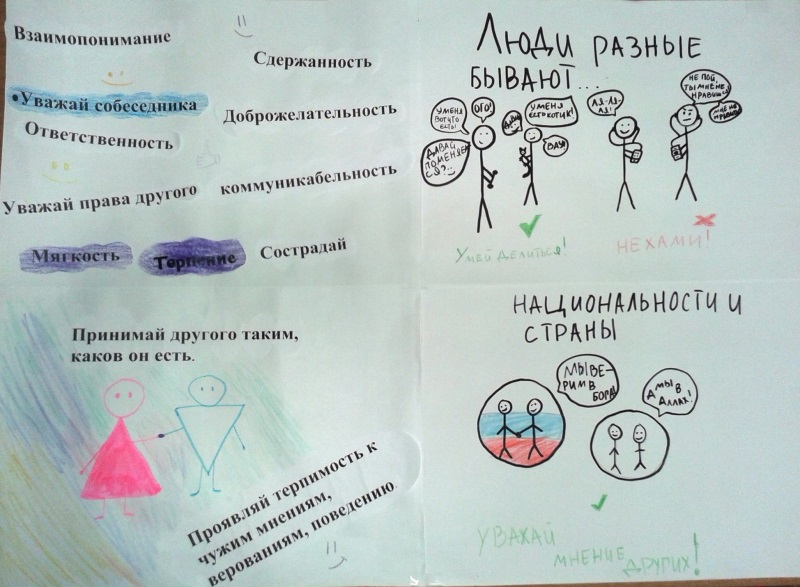 Взаимопонимание
Сдержанность
•Уважай собеседника
Доброжелательность
Ответственность
Уважай права другого
коммуникабельность
Мягкость
Терпение
Сострадай
Люди разные
бывают...
У меня
вот что
есть!
ОГО!
Давай
поменяем
ся?
У меня
есть котик!
Вау!
Ля-ля-
ля!
Не пой,
ты мне не
нравишься
Умей делиться!
Не хами!
Принимай другого таким,
каков он есть.
Проявляй терпимость к
чужим мнениям,
верованиям, поведению
Национальности и
страны
Мы ве-
рим в
бога!
А мы в
Аллах!
Уважай
мнение
других!